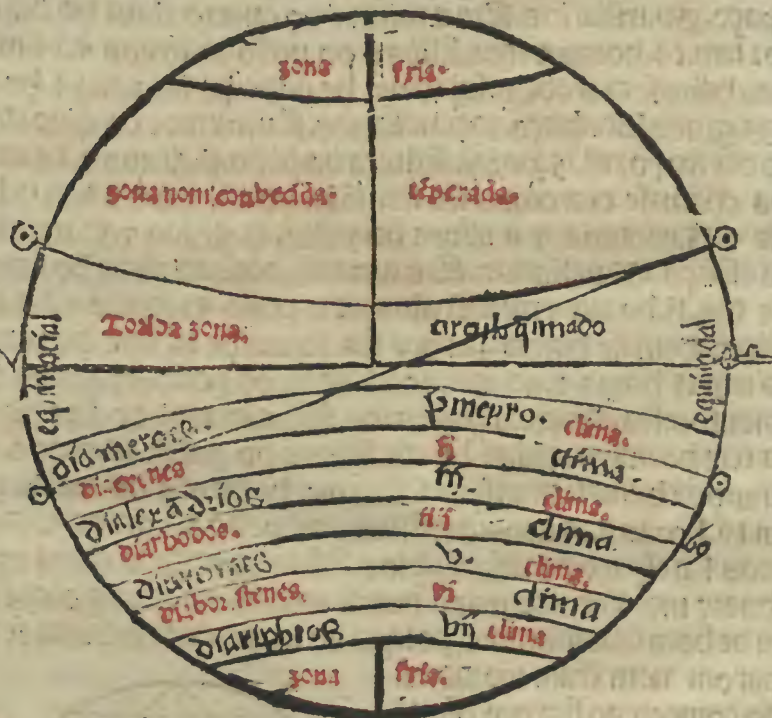 zona fria.
zona nom conhecida. tẽperada.
Torrida zona. circulo q̃imado
equinocial equinocial
diameroes. pmepro. clima.
diaxenes ij clima.
dialexãdrios iij. clima.
diarhodos. iiij clima
diaromes v. clima.
diaboristenes. vi clima
diaripheos vij clima
zona fria.